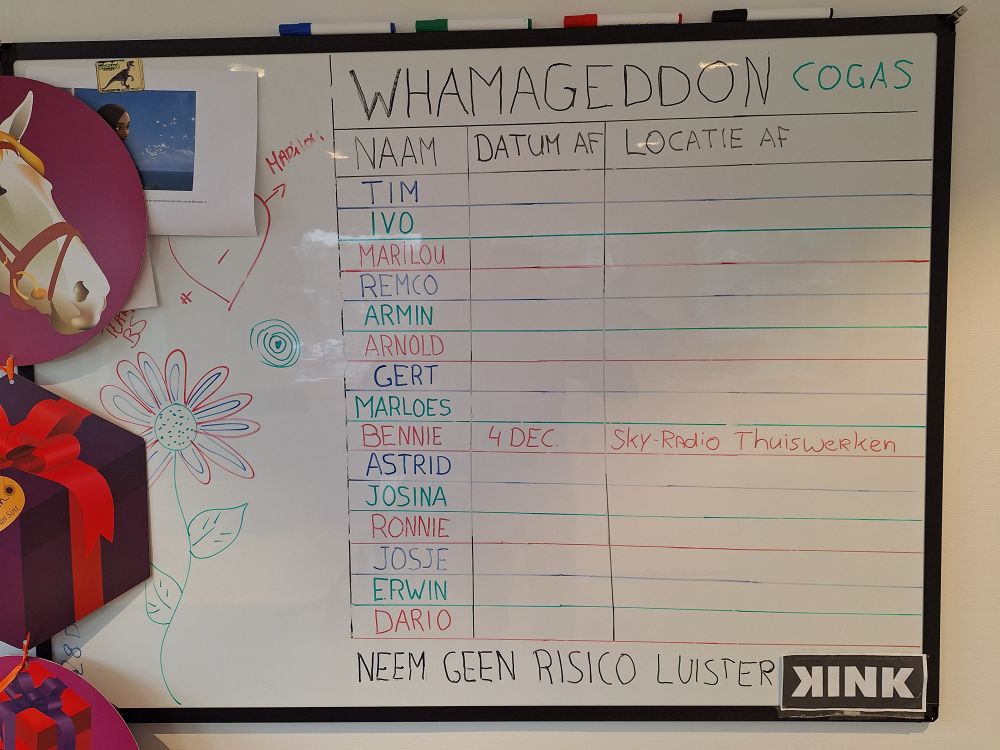 WHAMAGEDDON COGAS
NAAM DATUM AF LOCATIE AF
TIM
IVO
MARILOU
REMCO
ARMIN
ARNOLD
GERT
MARLOES
BENNIE 4 DEC. Sky-Radio Thuiswerken
ASTRID
JOSINA
RONNIE
JOSJE
ERWIN
DARIO
NEEM GEEN RISICO LUISTER KINK
MARILOU